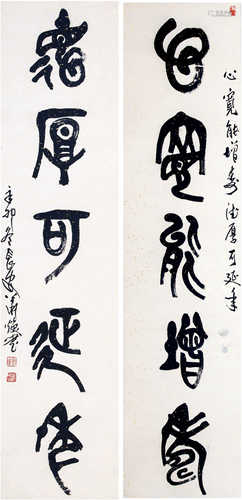 心寬能增壽
德厚可延年
心寬能增壽德厚可延年
辛卯冬